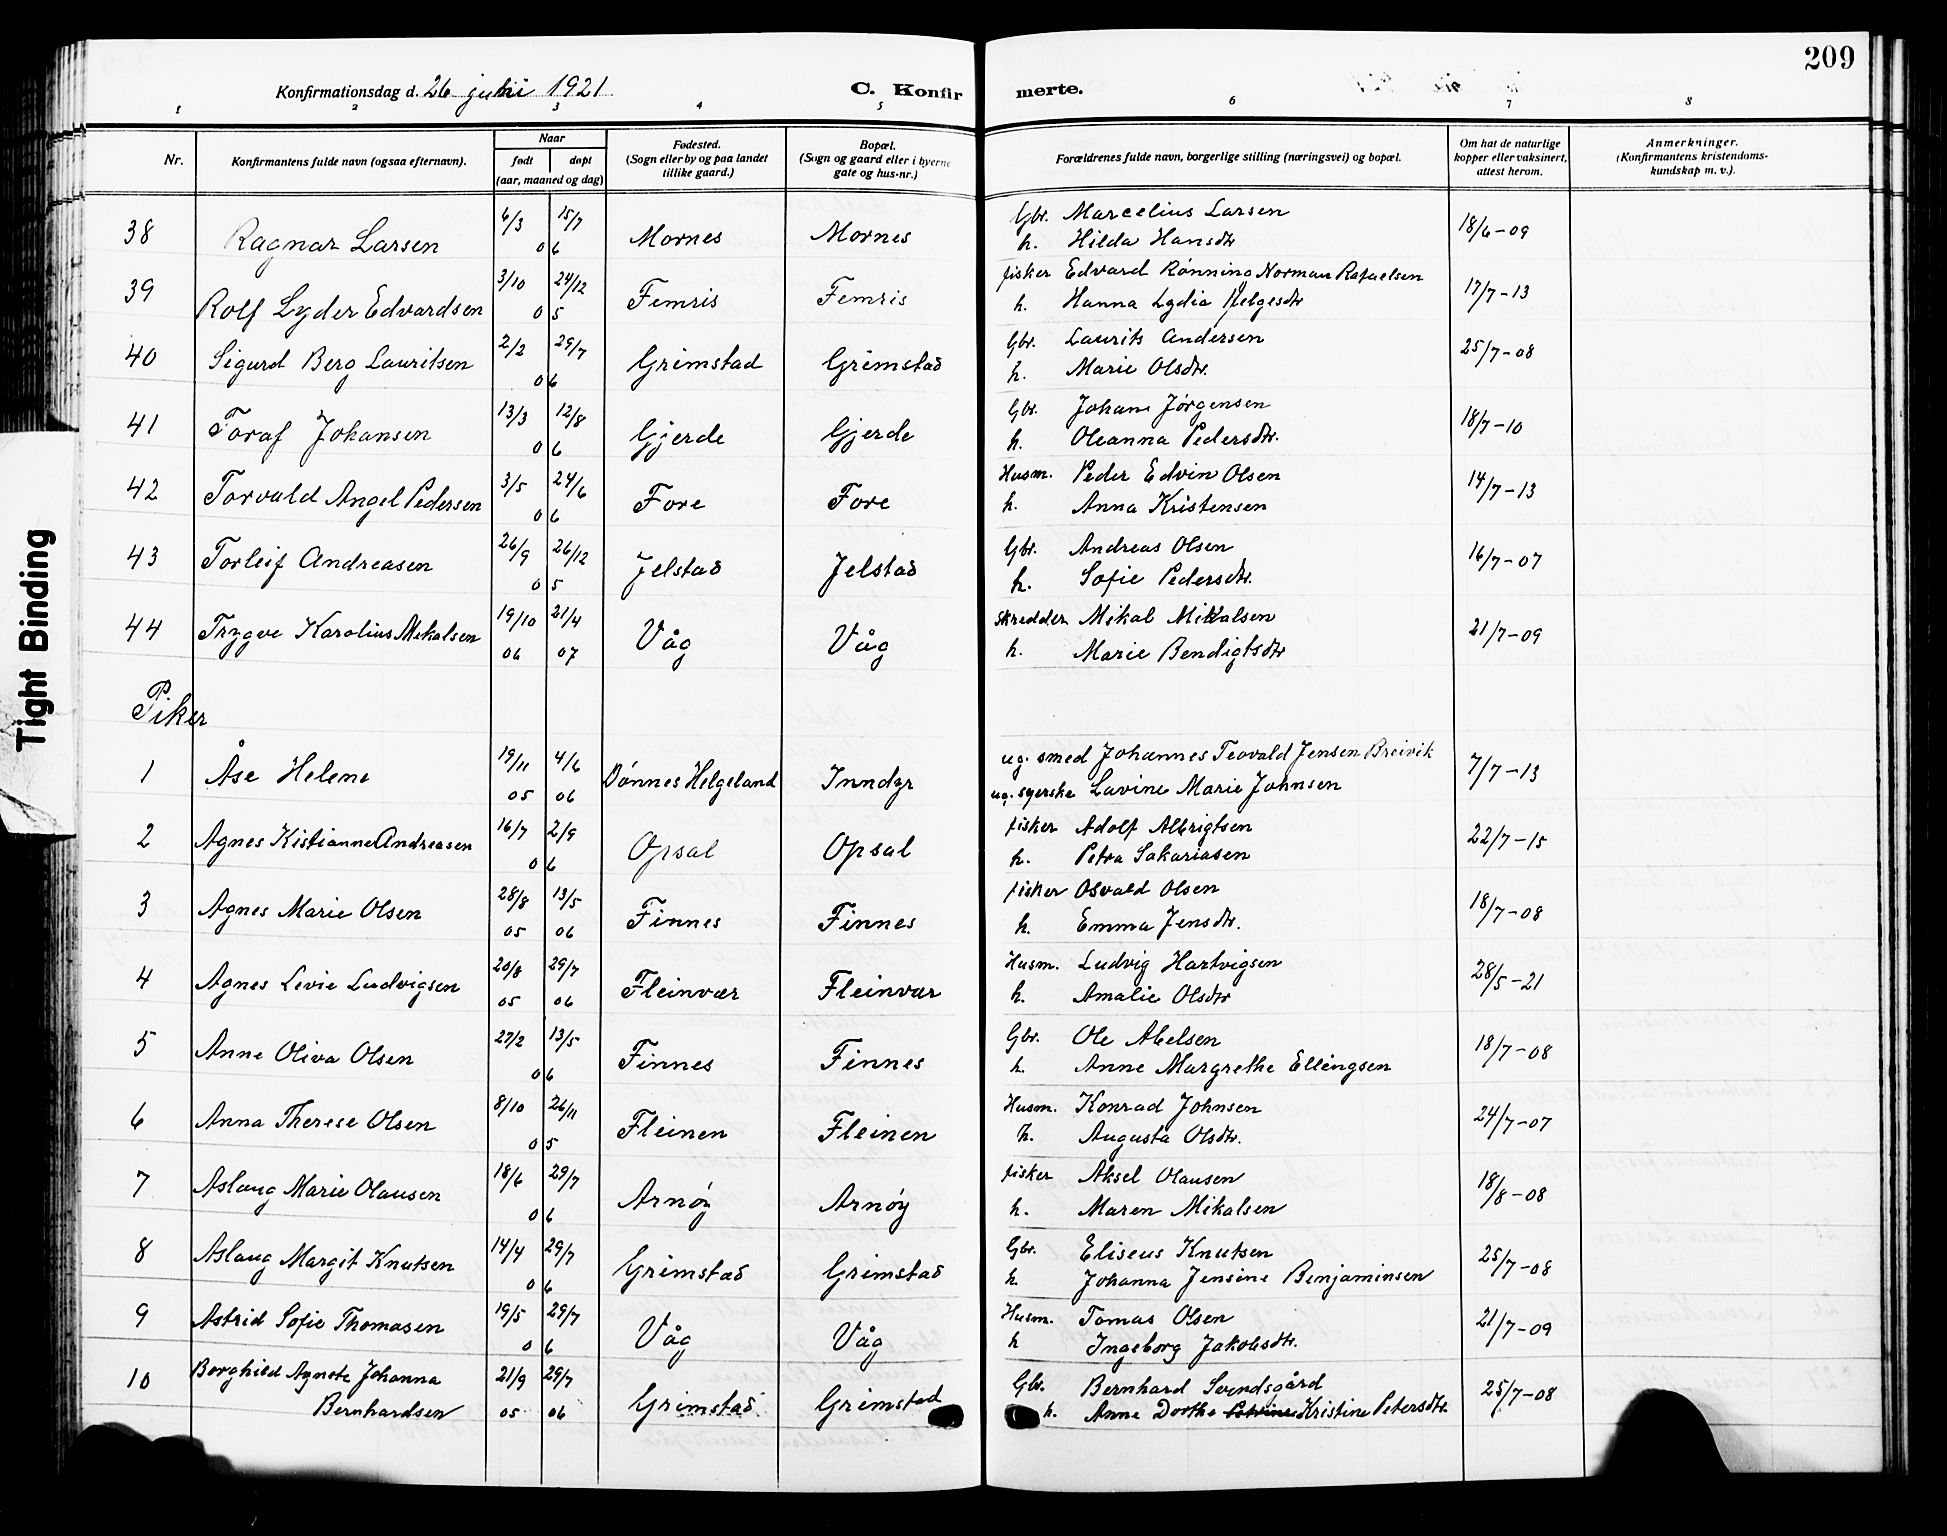 209
Konfirmationsdag d. 26 juni 1921
C. Konfirmerte.
1 2 3 4 5 6 7 8
Nr.
Konfirmantens fulde navn (ogsaa efternavn).
Naar
født døpt
(aar, maaned og dag)
Fødested.
(Sogn eller by og paa landet
tillike gaard.)
Bopæl.
(Sogn og gaard eller i byerne
gate og hus-nr.)
Forældrenes fulde navn, borgerlige stilling (næringsvei) og bopæl.
Om hat de naturlige
kopper eller vaksinert,
attest herom.
Anmerkninger.
(Konfirmantens kristendoms-
kundskap m. v.).
38 Ragnar Larsen 6/3 15/7 06 Mornes Mornes Gbr. Marcelius Larsen 18/6-09
h. Hilda Hansdtr
39 Rolf Lyder Edvardsen 3/10 24/12 05 Femris Femris fisker Edvard Rønning Norman Rafaelsen 17/7-13
h. Hanna Lydia Helgesdtr
40 Sigurd Berg Lauritsen 2/2 29/7 06 Grimstad Grimstad Gbr. Laurits Andersen 25/7-08
h. Marie Olsdtr.
41 Toraf Johansen 13/3 12/8 06 Gjerde Gjerde Gbr. Johan Jørgensen 18/7-10
h. Oleanna Pedersdtr.
42 Torvald Angel Pedersen 3/5 24/6 06 Fore Fore Husm. Peder Edvin Olsen 14/7-13
h. Anna Kristensen
43 Torleif Andreasen 26/9 26/12 05 Jelstad Jelstad Gbr. Andreas Olsen 16/7-07
h. Sofie Pedersdtr.
44 Trygve Karolius Mikalsen 19/10 06 21/4 07 Våg Våg skredder Mikal Mikalsen 21/7-09
h. Marie Bendigtsdtr
Piker
1 Åse Helene 19/11 05 4/6 06 Dønnes Helgeland Inndyr ug. smed Johannes Teovald Jensen Breivik 7/7-13
ug. syerske Lavine Marie Johnsen
2 Agnes Kistianne Andreasen 16/7 2/9 06 Opsal Opsal fisker Adolf Albrigtsen 22/7-15
h. Petra Sakariasen
3 Agnes Marie Olsen 28/8 05 13/5 06 Finnes Finnes fisker Osvald Olsen 18/7-08
h. Emma Jensdtr.
4 Agnes Levie Ludvigsen 20/8 05 29/7 06 Fleinvær Fleinvær Husm. Ludvig Hartvigsen 28/5-21
h. Amalie Olsdtr
5 Anne Oliva Olsen 27/2 13/5 06 Finnes Finnes Gbr. Ole Abelsen 18/7-08
h. Anne Margrethe Ellingsen
6 Anna Therese Olsen 8/10 26/11 05 Fleinen Fleinen Husm. Konrad Johnsen 24/7-07
h. Augusta Olsdtr.
7 Aslaug Marie Olausen 18/6 29/7 06 Arnøy Arnøy fisker Aksel Olausen 18/8-08
h. Maren Mikalsen
8 Aslaug Margit Knutsen 14/4 29/7 06 Grimstad Grimstad Gbr. Eliseus Knutsen 25/7-08
h Johanna Jensine Benjaminsen
9 Astrid Sofie Thomasen 19/5 29/7 06 Våg Våg Husm. Tomas Olsen 21/7-09
h Ingeborg Jakobsdtr.
10 Borghild Agnete Johanna 21/9 29/7 Grimstad Grimstad Gbr. Bernhard Svendsgård 25/7-08
Bernhardsen 05 06 h. Anne Dorthe Kristine Petersdtr.
Tight Binding